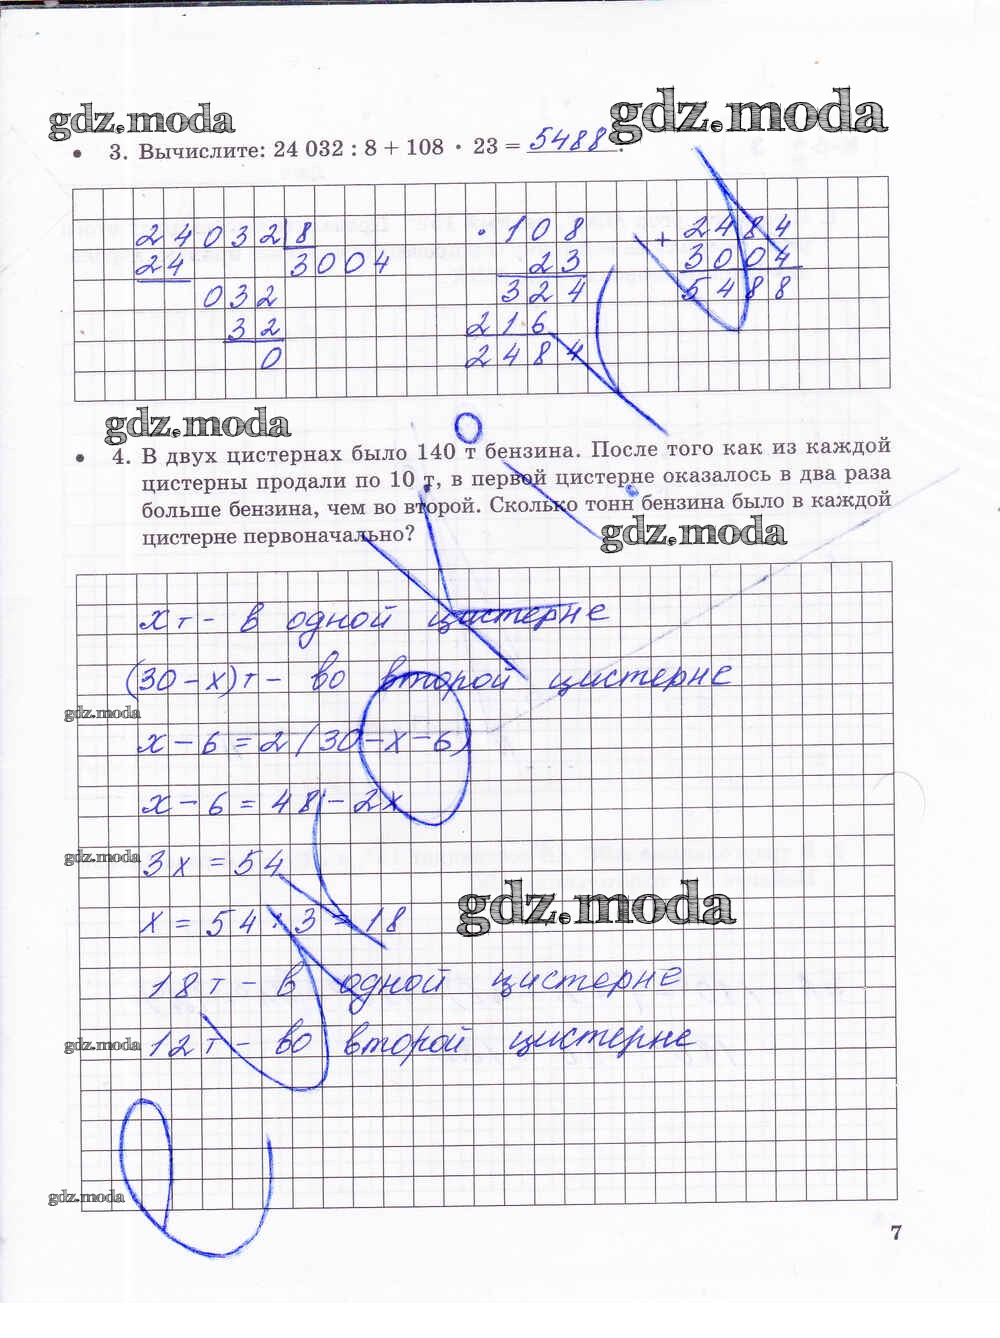 gdz.moda
gdz.moda
• 3. Вычислите: 24 032 : 8 + 108 · 23 = 5488.
24032 8
24 3004
032
32
0
· 108
23
324
216
2484
+ 2484
3004
5488
gdz.moda
• 4. В двух цистернах было 140 т бензина. После того как из каждой
цистерны продали по 10 т, в первой цистерне оказалось в два раза
больше бензина, чем во второй. Сколько тонн бензина было в каждой
gdz.moda
цистерне первоначально?
x т - в одной цистерне
(30 - x) т - во второй цистерне
gdz.moda
x - 6 = 2 (30 - x - 6)
x - 6 = 48 - 2x
gdz.moda
3x = 54
gdz.moda
x = 54 : 3 = 18
18 т - в одной цистерне
gdz.moda
12 т - во второй цистерне
gdz.moda
7